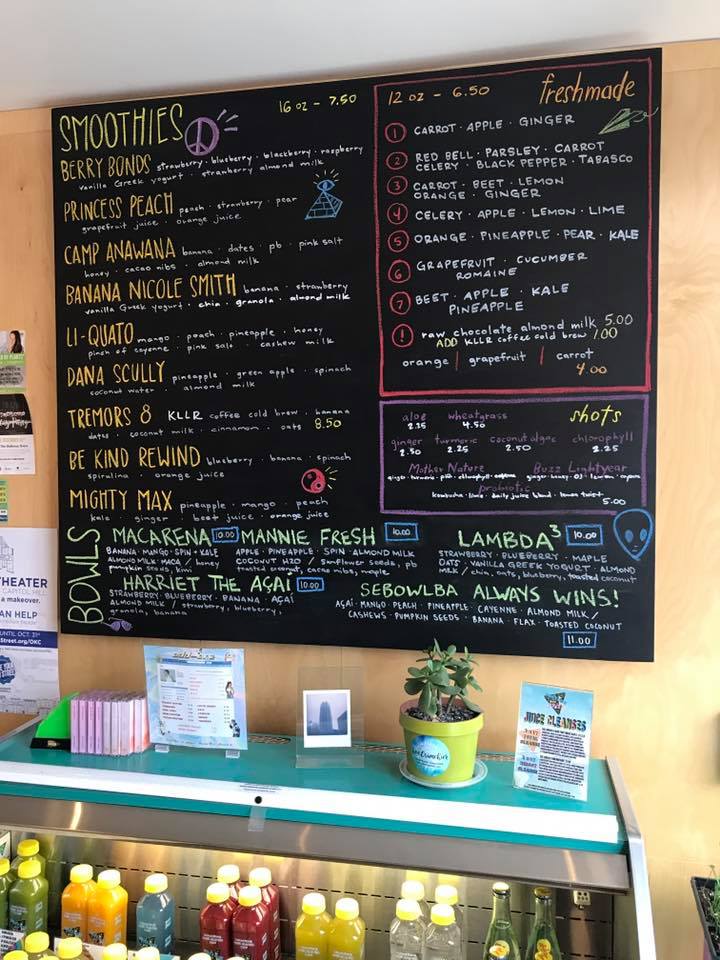 SMOOTHIES
16 oz - 7.50
BERRY BONDS strawberry · blueberry · blackberry · raspberry
vanilla Greek yogurt · strawberry almond milk
PRINCESS PEACH peach · strawberry · pear
grapefruit juice · orange juice
CAMP ANAWANA banana · dates · pb · pink salt
honey · cacao nibs · almond milk
BANANA NICOLE SMITH banana · strawberry
vanilla Greek yogurt · chia · granola · almond milk
LI-QUATO mango · peach · pineapple · honey
pinch of cayenne · pink salt · cashew milk
DANA SCULLY pineapple · green apple · spinach
coconut water · almond milk
TREMORS 8 KLLR coffee cold brew · banana
dates · coconut milk · cinnamon · oats 8.50
BE KIND REWIND blueberry · banana · spinach
spirulina · orange juice
MIGHTY MAX pineapple · mango · peach
kale · ginger · beet juice · orange juice
12 oz - 6.50 freshmade
1 CARROT · APPLE · GINGER
2 RED BELL · PARSLEY · CARROT
CELERY · BLACK PEPPER · TABASCO
3 CARROT · BEET · LEMON
ORANGE · GINGER
4 CELERY · APPLE · LEMON · LIME
5 ORANGE · PINEAPPLE · PEAR · KALE
6 GRAPEFRUIT · CUCUMBER
ROMAINE
7 BEET · APPLE · KALE
PINEAPPLE
! raw chocolate almond milk 5.00
ADD KLLR coffee cold brew 1.00
orange | grapefruit | carrot
4.00
aloe wheatgrass shots
2.25 4.50
ginger turmeric coconut algae chlorophyll
2.50 2.25 2.50 2.25
Mother Nature Buzz Lightyear
probiotic
kombucha · lime · daily juice blend · lemon twist
5.00
BOWLS
MACARENA 10.00
BANANA · MANGO · SPIN · KALE
ALMOND MILK · MACA / honey
pumpkin seeds, kiwi
MANNIE FRESH 10.00
APPLE · PINEAPPLE · SPIN · ALMOND MILK
COCONUT H2O / sunflower seeds, pb
toasted coconut, cacao nibs, maple
LAMBDA³ 10.00
STRAWBERRY · BLUEBERRY · MAPLE
OATS · VANILLA GREEK YOGURT · ALMOND
MILK / chia, oats, blueberry, toasted coconut
HARRIET THE AÇAÍ 10.00
STRAWBERRY · BLUEBERRY · BANANA · AÇAÍ
ALMOND MILK / strawberry, blueberry,
granola, banana
SEBOWLBA ALWAYS WINS!
AÇAI · MANGO · PEACH · PINEAPPLE · CAYENNE · ALMOND MILK /
CASHEWS · PUMPKIN SEEDS · BANANA · FLAX · TOASTED COCONUT
11.00
THEATER
a makeover.
AN HELP
UNTIL OCT. 31
Street.org/OKC
JUICE CLEANSES